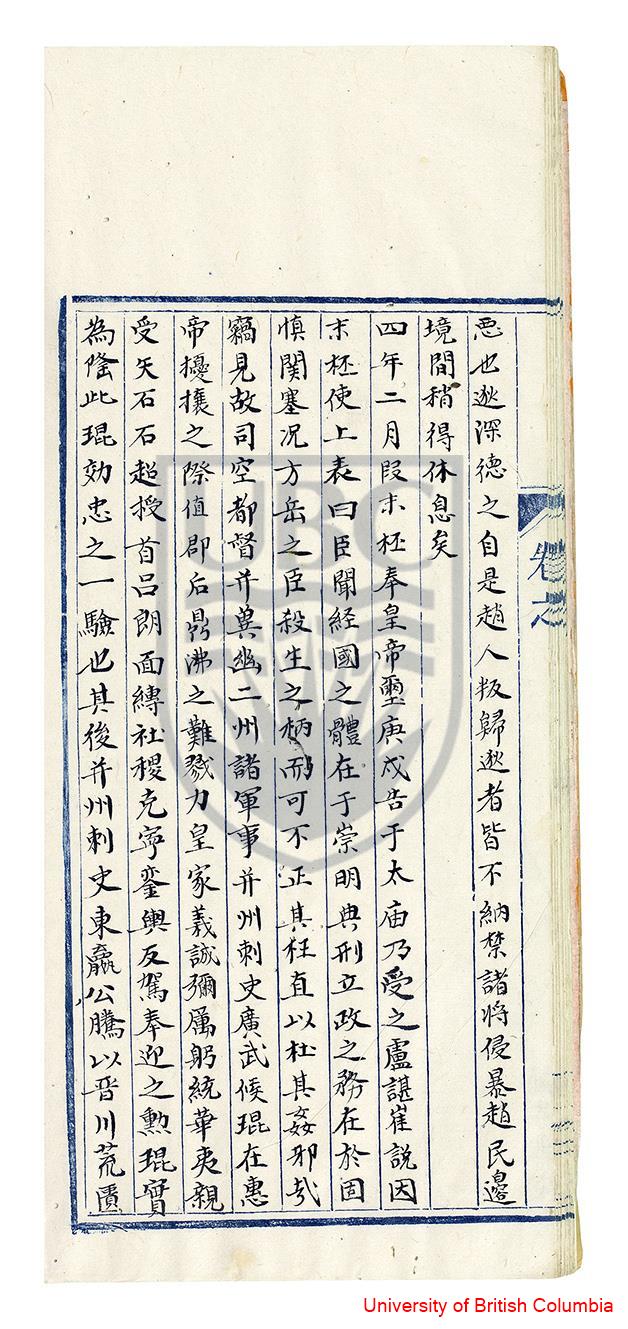 惡也逖深德之自是趙人叛歸逖者皆不納禁諸將侵暴趙民邊
境間稍得休息矣
四年二月段末柸奉皇帝璽庚戍告于太庙乃受之盧諶崔説因
末柸使上表曰臣聞經國之體在于崇明典刑立政之務在於固
慎関塞况方岳之臣殺生之柄而可不正其枉直以杜其姦邪㢤
竊見故司空都督并兾幽二州諸軍事并州刺史廣武侯琨在惠
帝擾攘之際值郡后鼎沸之難戮力皇家義誠彌厲躬統華夷親
受矢石石超授首吕朗面縛社稷克寧鑾輿反駕奉迎之勲琨實
為隆此琨効忠之一驗也其後并州刺史東嬴公騰以晉川荒匱
卷之
UBC
University of British Columbia